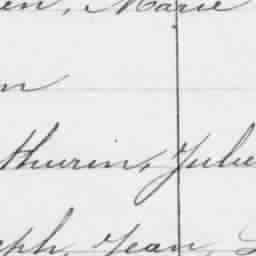 en, Marie
n
thurin, Julie
eph, Jean, L